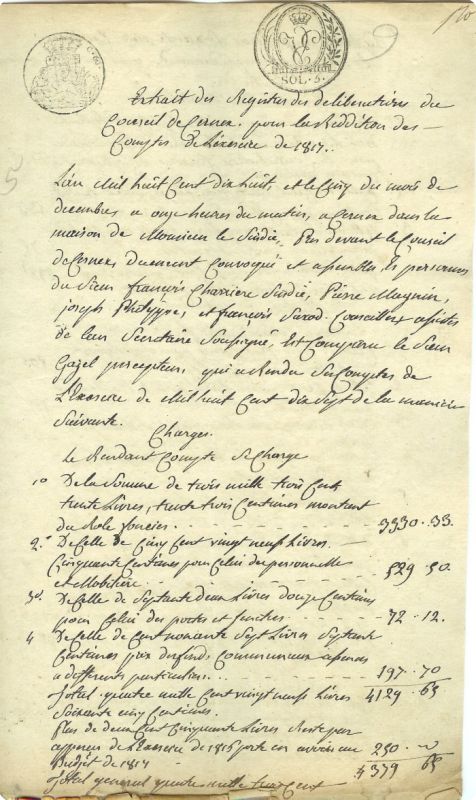 SOL. 5.
Extrait des Registres des deliberations du
Conseil de Cernex pour la Reddition des
Comptes de L'exercice de 1817.
L'an Mil huit Cent dix huit, et le Cinq du mois de
decembre a onze heures du matin, a Cernex dans la
maison de Monsieur le Sindic, Par devant le Conseil
de Cernex, Duement Convoqué et assemblé, les personnes
du Sieur françois Charriere Sindic, Pierre Magnin,
joseph Philippe, et françois Conseillers assistés
de leur Secretaire Soussigné, Est Comparu le Sieur
Gazel percepteur, qui a Rendu Ses Comptes de
L'Exercice de Mil huit Cent dix Sept de la maniere
Suivante.
Charges.
Le Rendant Compte Se Charge
1º De la Somme de trois mille trois Cent
trente Livres, trente trois Centimes montant
du Role foncier. 3330. 33.
2º De Celle de Cinq Cent vingt neuf Livres
Cinquante Centimes pour Celui du personnelle
et Mobiliere 529 50.
3º. De Celle de Septante deux Livres douze Centimes
pour Celui des portes et fenetres. 72. 12.
4 De Celle de Cent nonante Sept Livres Septante
Centimes prix des fonds Communaux
a differents particuliers. 197. 70
Total quatre mille Cent vingt neuf Livres 4129. 65
Soixante cinq Centimes.
Plus de deux Cent Cinquante Livres
de L'Exercice de 1816 porté en au 250. 00
Budget de 1817 4379 65
Total general quatre mille trois Cent